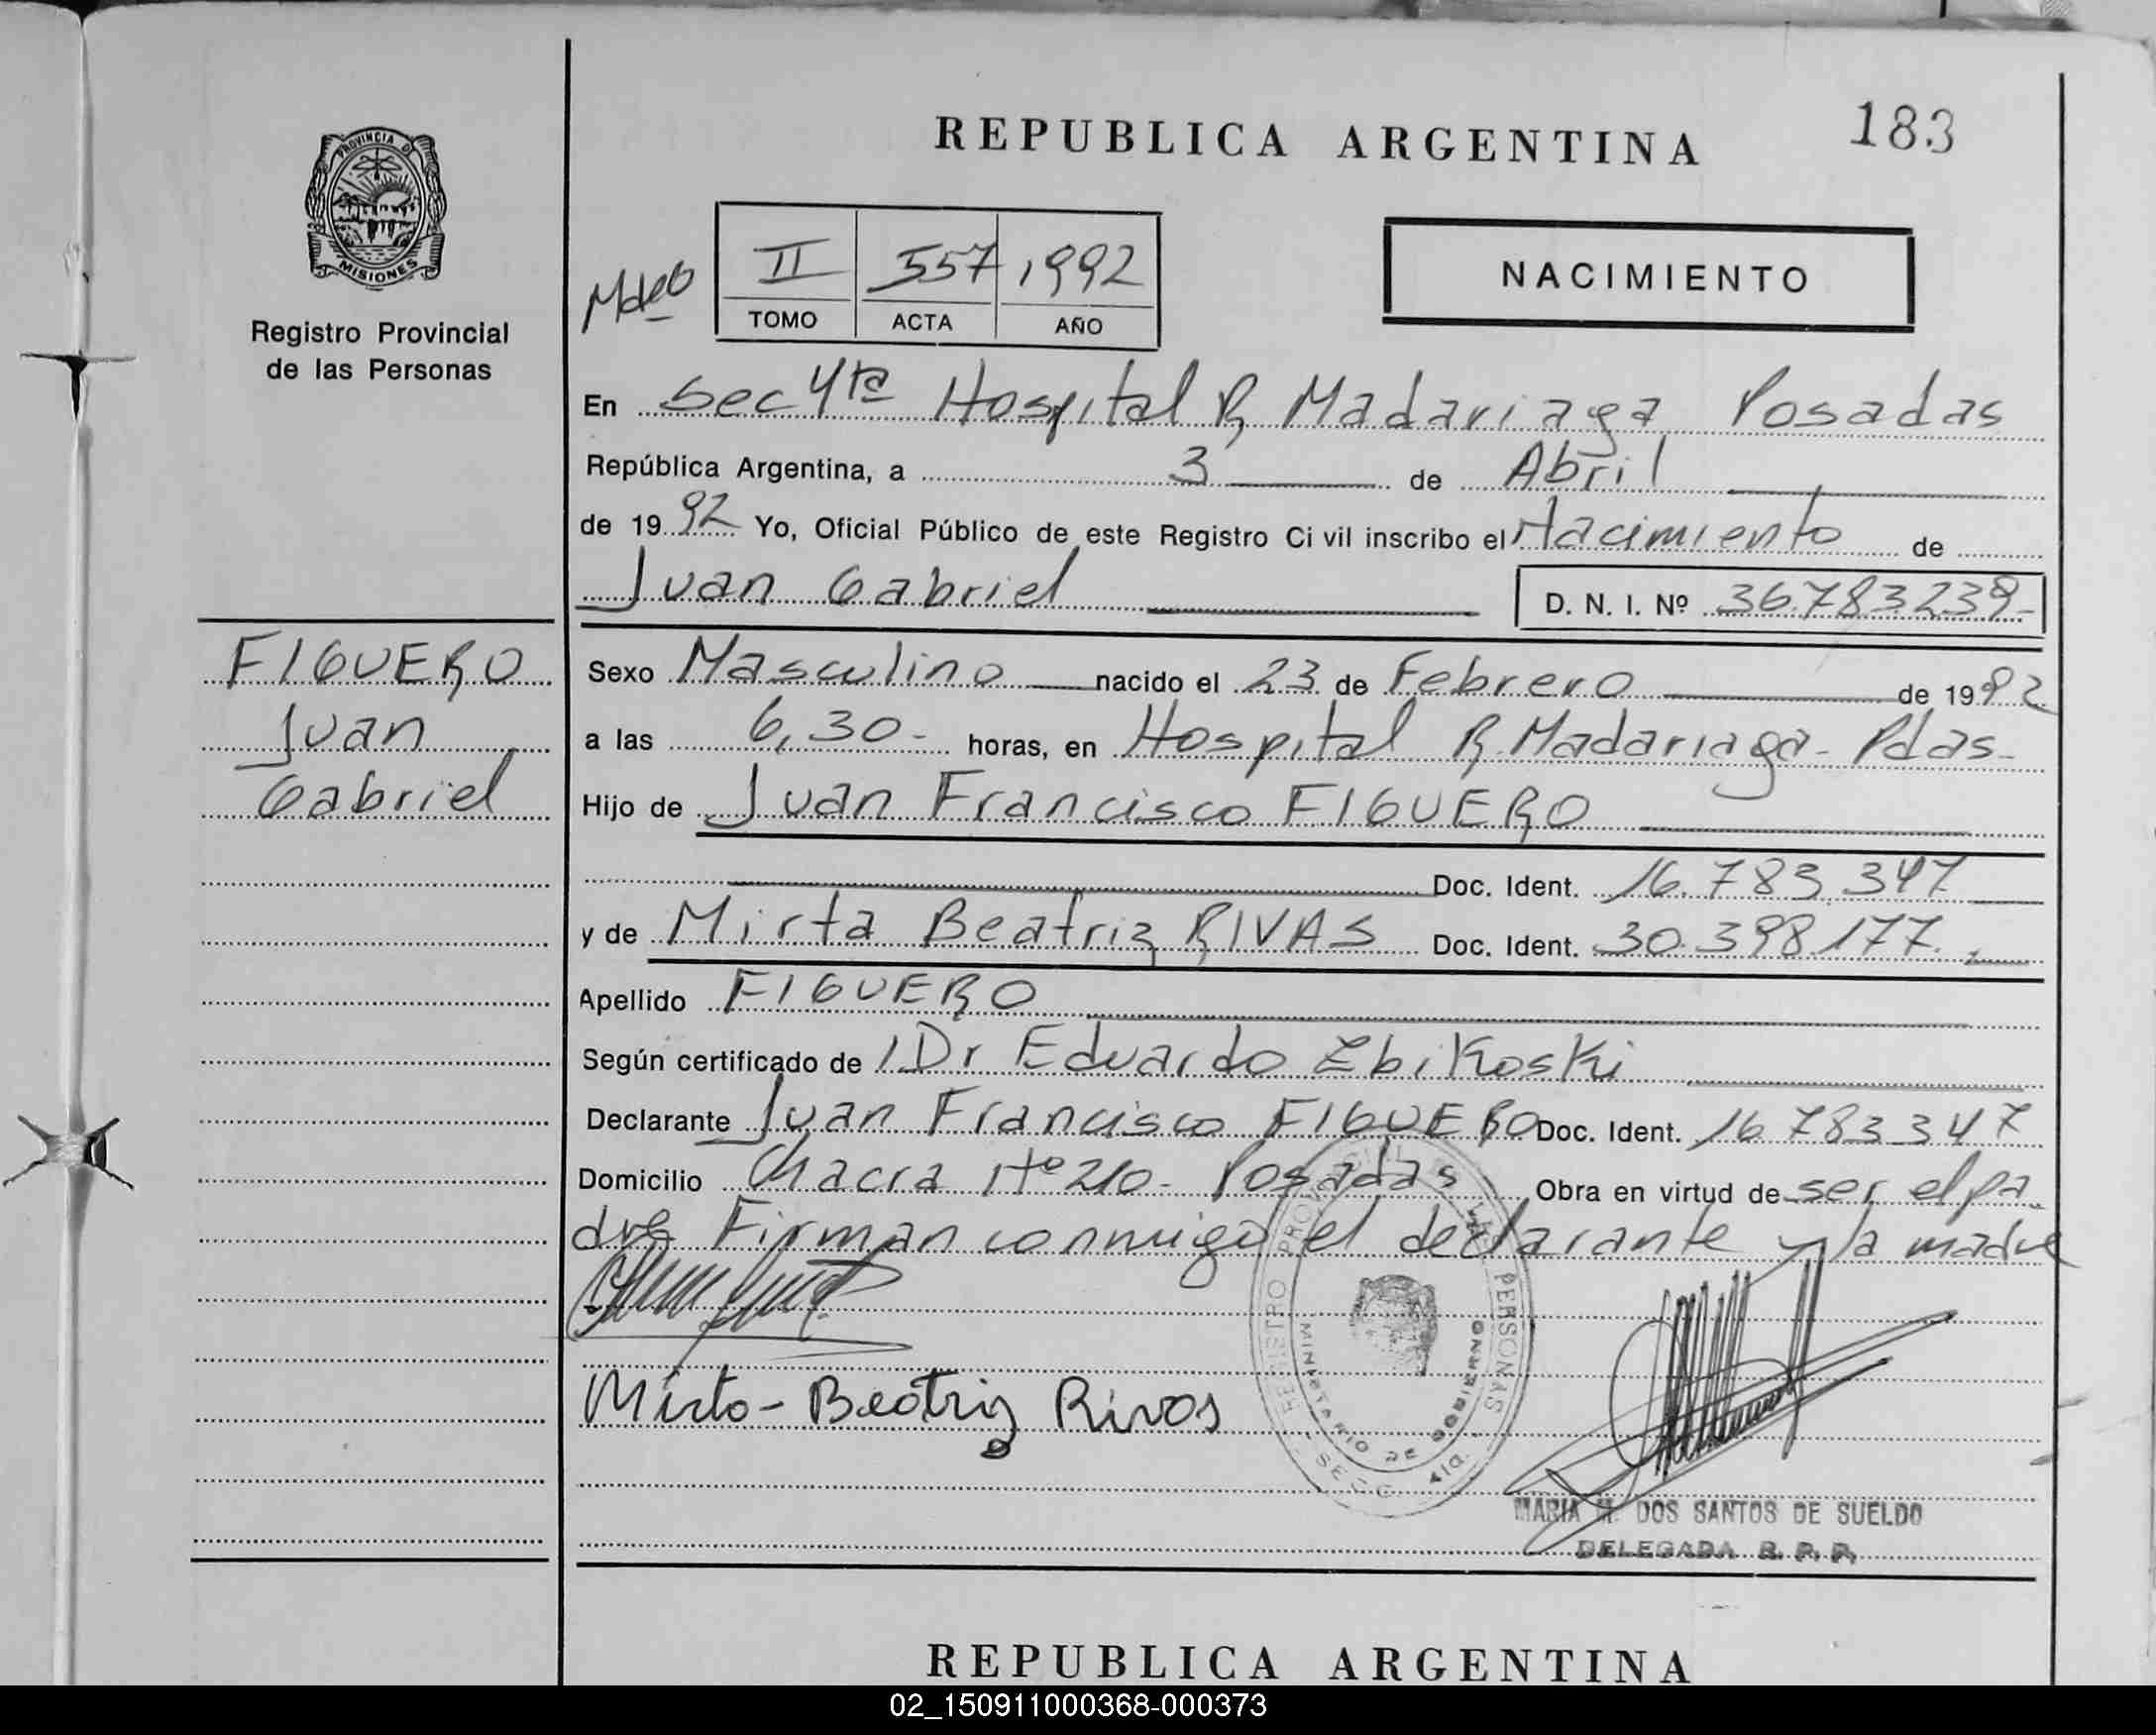 REPUBLICA ARGENTINA
183
PROVINCIA DE
MISIONES
Registro Provincial
de las Personas
II 557 1992
TOMO ACTA AÑO
NACIMIENTO
En Sec 4ta Hospital R Madariaga Posadas
República Argentina, a 3 de Abril
de 1992 Yo, Oficial Público de este Registro Civil inscribo el Nacimiento de
Juan Gabriel D. N. I. Nº 36.783.239-
FIGUERO
Juan
Gabriel
Sexo Masculino nacido el 23 de Febrero de 1992
a las 6,30- horas, en Hospital R. Madariaga- Pdas-
Hijo de Juan Francisco FIGUERO
Doc. Ident. 16.783.347
y de Mirta Beatriz RIVAS Doc. Ident. 30.398.177.
Apellido FIGUERO
Según certificado de Dr Eduardo Zbikoski
Declarante Juan Francisco FIGUERO Doc. Ident. 16 783 347
Domicilio Chacra Nº 210- Posadas Obra en virtud de ser el pa
dre Firman conmigo el declarante y la madre
Mirta-Beatriz Rivas
REGISTRO PROVINCIAL DE LAS PERSONAS
MINISTERIO DE GOBIERNO
SECC. 4ta.
MARIA M. DOS SANTOS DE SUELDO
DELEGADA R. P. P.
REPUBLICA ARGENTINA
02_150911000368-000373